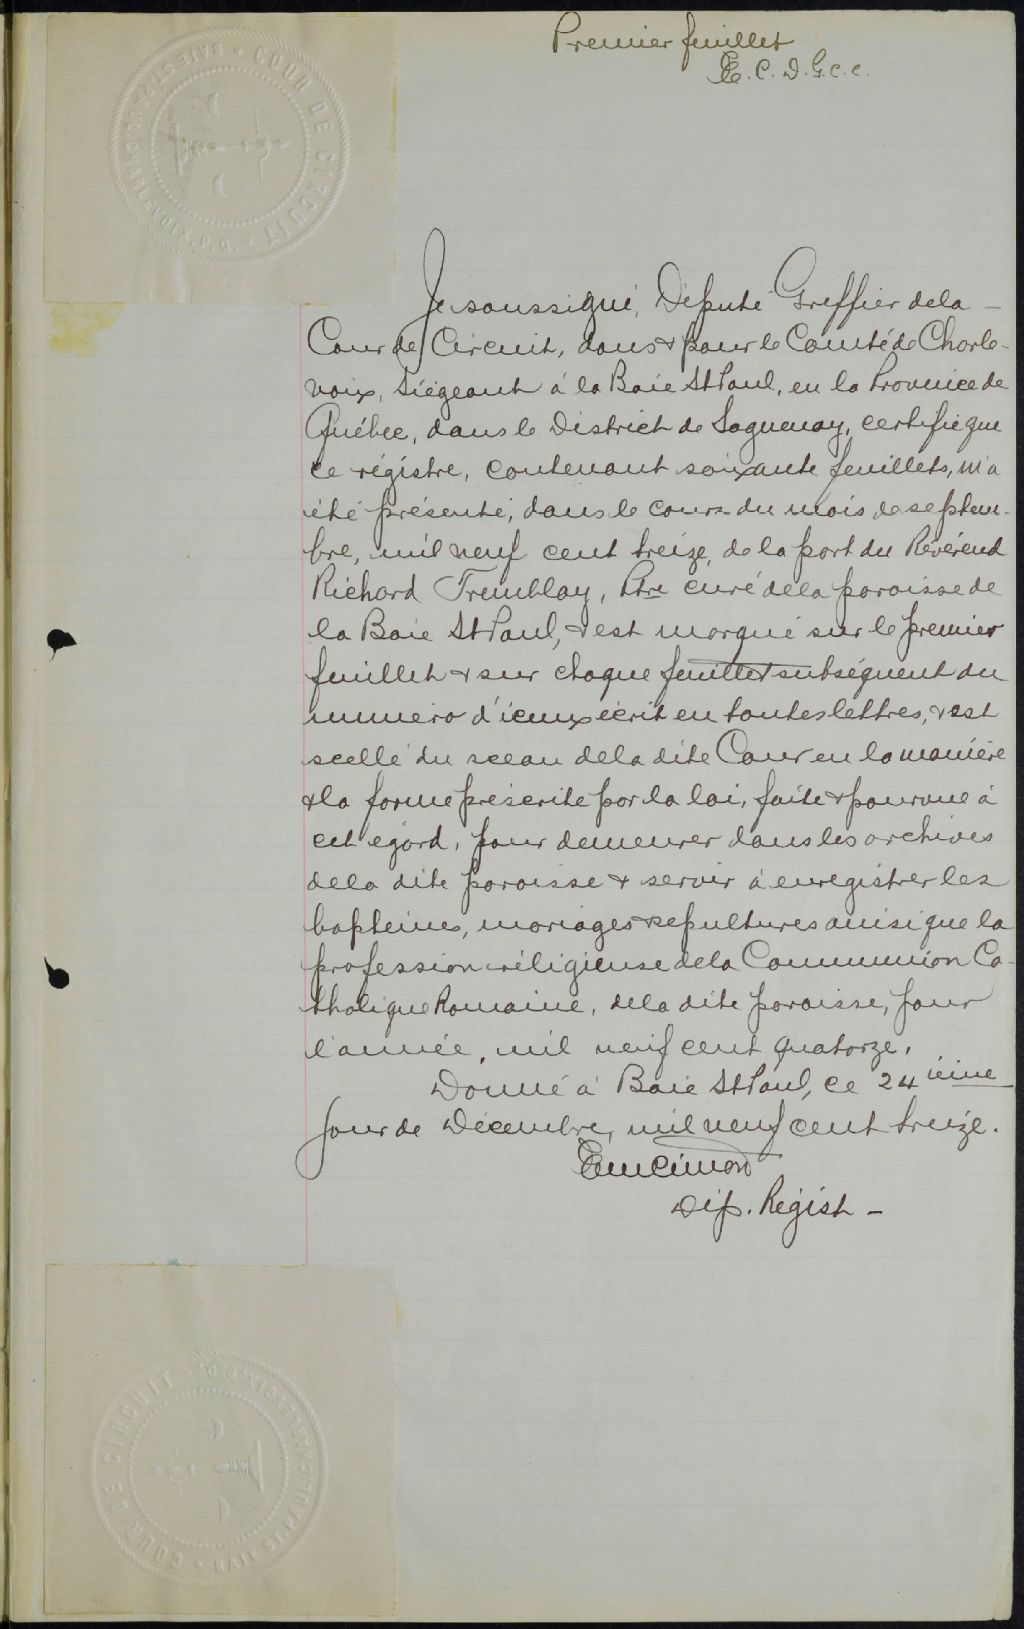 Premier feuillet
E. C. D. G. C. C.
COUR DE CIRCUIT
BAIE ST. PAUL, CHARLEVOIX, P.Q.
Je soussigné, Député Greffier de la -
Cour de Circuit, dans & pour le Comté de Charle-
voix, Siégeant à la Baie St Paul, en la Province de
Québec, dans le District de Saguenay, certifie que
ce régistre, contenant soixante feuillets, m'a
été présenté, dans le cours du mois de septem-
bre, mil neuf cent treize, de la part du Révérend
Richard Tremblay, Ptre curé de la paroisse de
la Baie St Paul, & est marqué sur le premier
feuillet & sur chaque feuillet subséquent du
numero d'iceux écrit en toutes lettres, & est
scellé du sceau de la dite Cour en la manière
& la forme préscrite par la loi, faite & pourvue à
cet égard, pour demeurer dans les archives
de la dite paroisse & servir à enregistrer les
baptêmes, mariages & sepultures ainsi que la
profession réligieuse de la Communion Ca-
tholique Romaine, de la dite paroisse, pour
l'année, mil neuf cent quatorze.
Donné à Baie St Paul, ce 24 ième
jour de Décembre, mil neuf cent treize.
Em Cimon
Dép. Régist -
COUR DE CIRCUIT
BAIE ST. PAUL, CHARLEVOIX, P.Q.